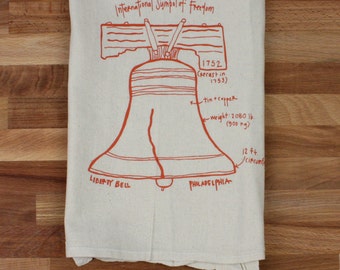 International Symbol of Freedom
1752
(recast in
1753)
tin + copper
weight 2080 lb
(900 kg)
12 ft
LIBERTY BELL PHILADELPHIA